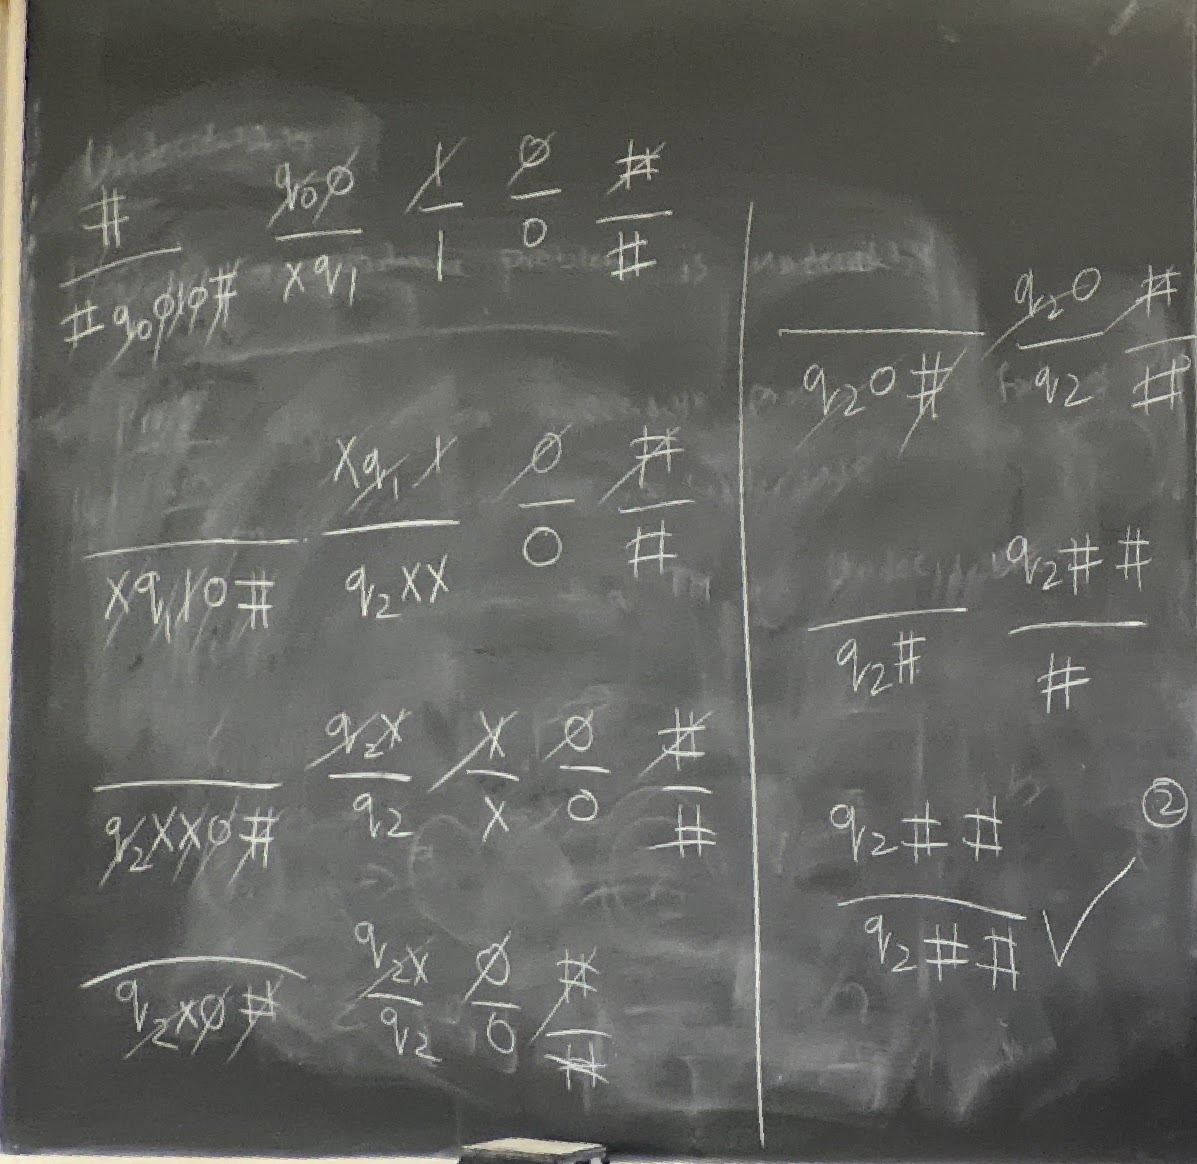 # q₀0 1 0 #
#q₀010# xq₁ 1 0 #
xq₁1 0 #
xq₁10# q₂xx 0 #
q₂x x 0 #
q₂xx0# q₂ x 0 #
q₂x 0 #
q₂x0# q₂ 0 #
q₂0 #
q₂0# q₂ #
q₂##
q₂# #
q₂## ②
q₂## ✓